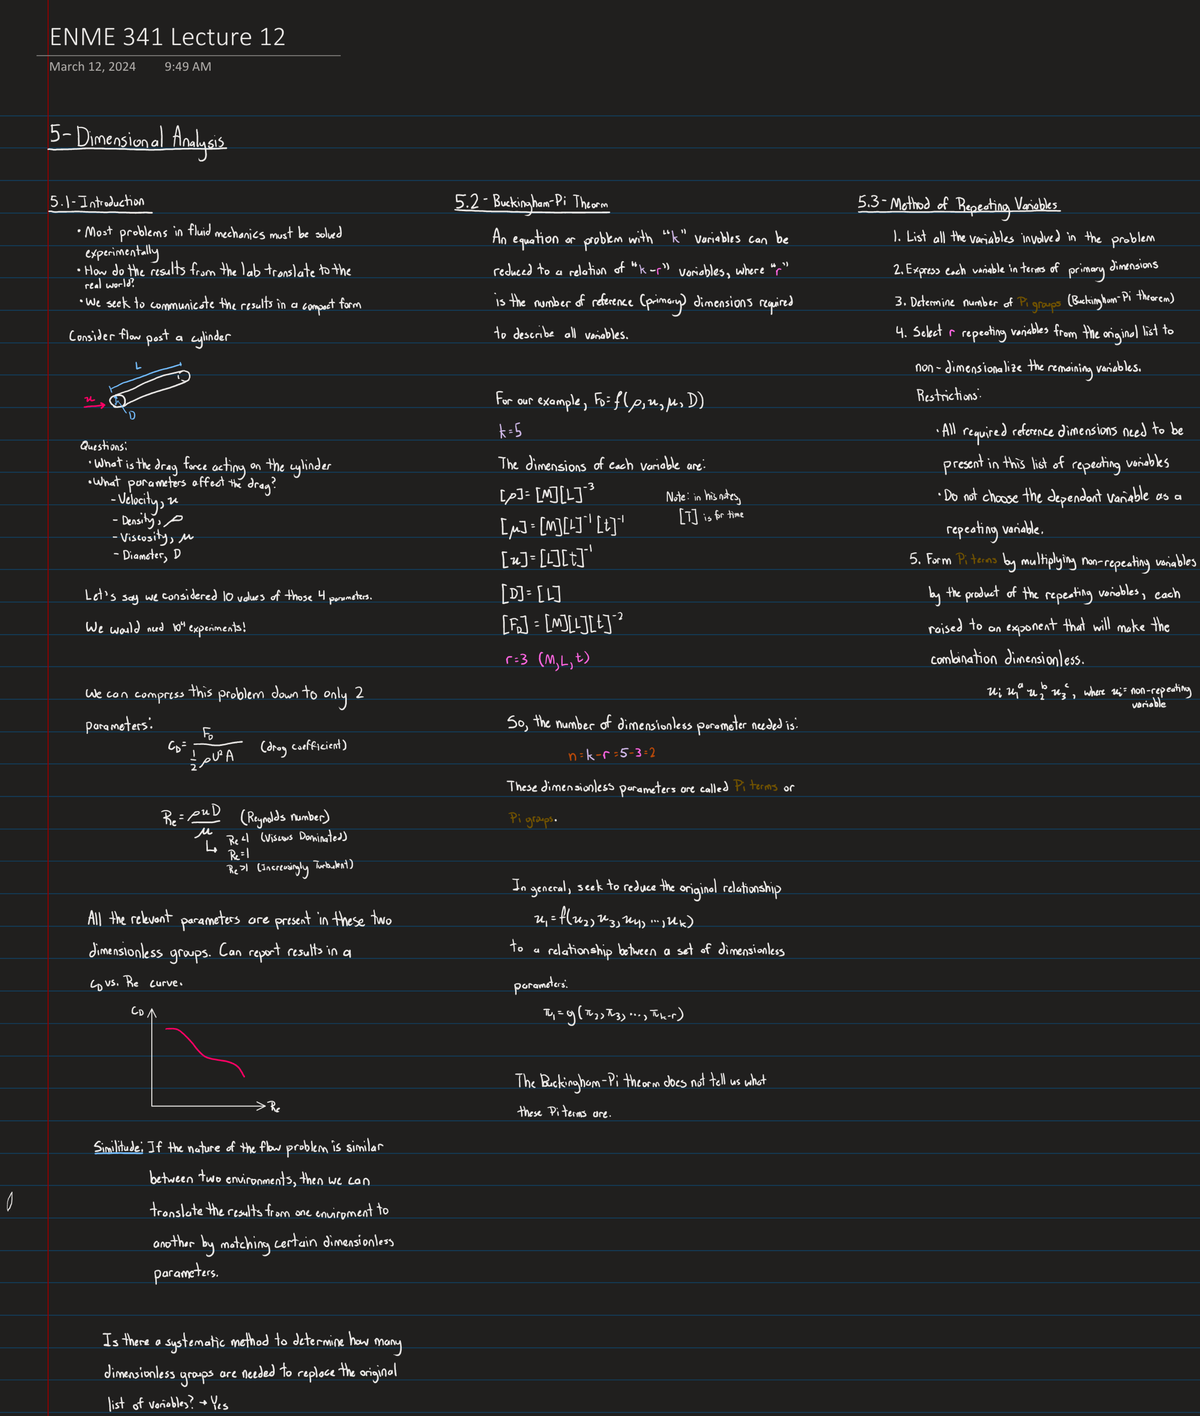 ENME 341 Lecture 12
March 12, 2024 9:49 AM
5-Dimensional Analysis
5.1-Introduction
• Most problems in fluid mechanics must be solved
experimentally
• How do the results from the lab translate to the
real world?
• We seek to communicate the results in a compact form
Consider flow past a cylinder
L
u
D
Questions:
• What is the drag force acting on the cylinder
• What parameters affect the drag?
- Velocity, u
- Density, ρ
- Viscosity, μ
- Diameter, D
Let's say we considered 10 values of those 4 parameters.
We would need 10⁴ experiments!
We can compress this problem down to only 2
parameters:
C_D = F_D / (1/2 ρU²A) (drag coefficient)
Re = ρuD / μ (Reynolds number)
↳ Re<1 (Viscous Dominated)
Re=1
Re>1 (Increasingly Turbulent)
All the relevant parameters are present in these two
dimensionless groups. Can report results in a
C_D vs. Re curve.
C_D
Re
Similitude: If the nature of the flow problem is similar
between two environments, then we can
translate the results from one enviroment to
another by matching certain dimensionless
parameters.
Is there a systematic method to determine how many
dimensionless groups are needed to replace the original
list of variables? → Yes
5.2 - Buckingham-Pi Theorm
An equation or problem with "k" variables can be
reduced to a relation of "k-r" variables, where "r"
is the number of reference (primary) dimensions required
to describe all variables.
For our example, F_D = f(ρ, u, μ, D)
k=5
The dimensions of each variable are:
[ρ] = [M][L]⁻³
[μ] = [M][L]⁻¹[t]⁻¹
[u] = [L][t]⁻¹
[D] = [L]
[F_D] = [M][L][t]⁻²
Note: in his notes,
[T] is for time
r=3 (M, L, t)
So, the number of dimensionless parameter needed is:
n=k-r=5-3=2
These dimensionless parameters are called Pi terms or
Pi groups.
In general, seek to reduce the original relationship
u₁ = f(u₂, u₃, u₄, ..., u_k)
to a relationship between a set of dimensionless
parameters:
π₁ = g(π₂, π₃, ..., π_k-r)
The Buckingham-Pi theorm does not tell us what
these Pi terms are.
5.3 - Method of Repeating Variables
1. List all the variables involved in the problem
2. Express each variable in terms of primary dimensions
3. Determine number of Pi groups (Buckingham-Pi theorem)
4. Select r repeating variables from the original list to
non-dimensionalize the remaining variables.
Restrictions:
• All required reference dimensions need to be
present in this list of repeating variables
• Do not choose the dependant variable as a
repeating variable.
5. Form Pi terms by multiplying non-repeating variables
by the product of the repeating variables, each
raised to an exponent that will make the
combination dimensionless.
u_i u₁ᵃ u₂ᵇ u₃ᶜ, where u_i = non-repeating
variable